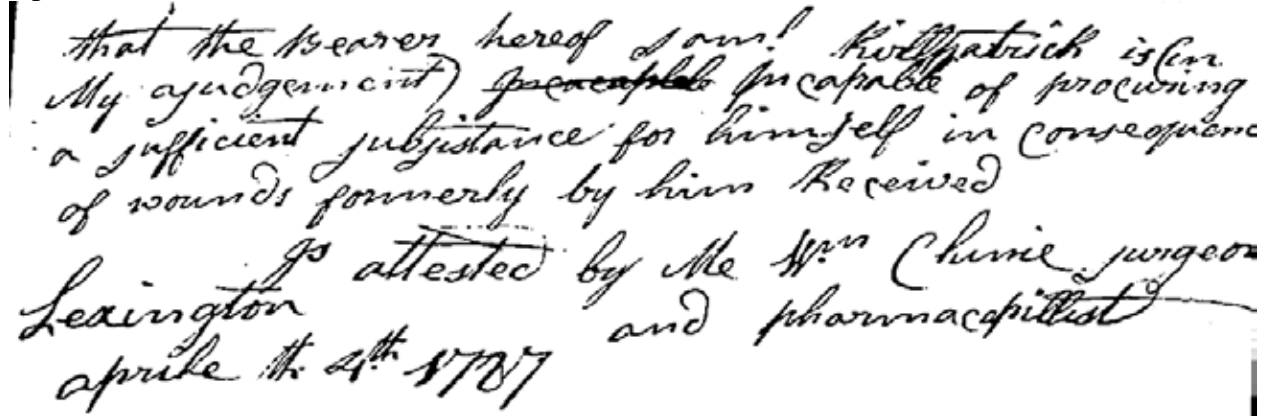 that the Bearer hereof Sam! Killpatrick is (in
My ajudgement) Incapable of procuring
a sufficient subsistance for himself in Consequenc
of wounds formerly by him Received
Is attested by Me Wm Clunie surgeon
Lexington and pharmacapillist
aprile th 4th 1787